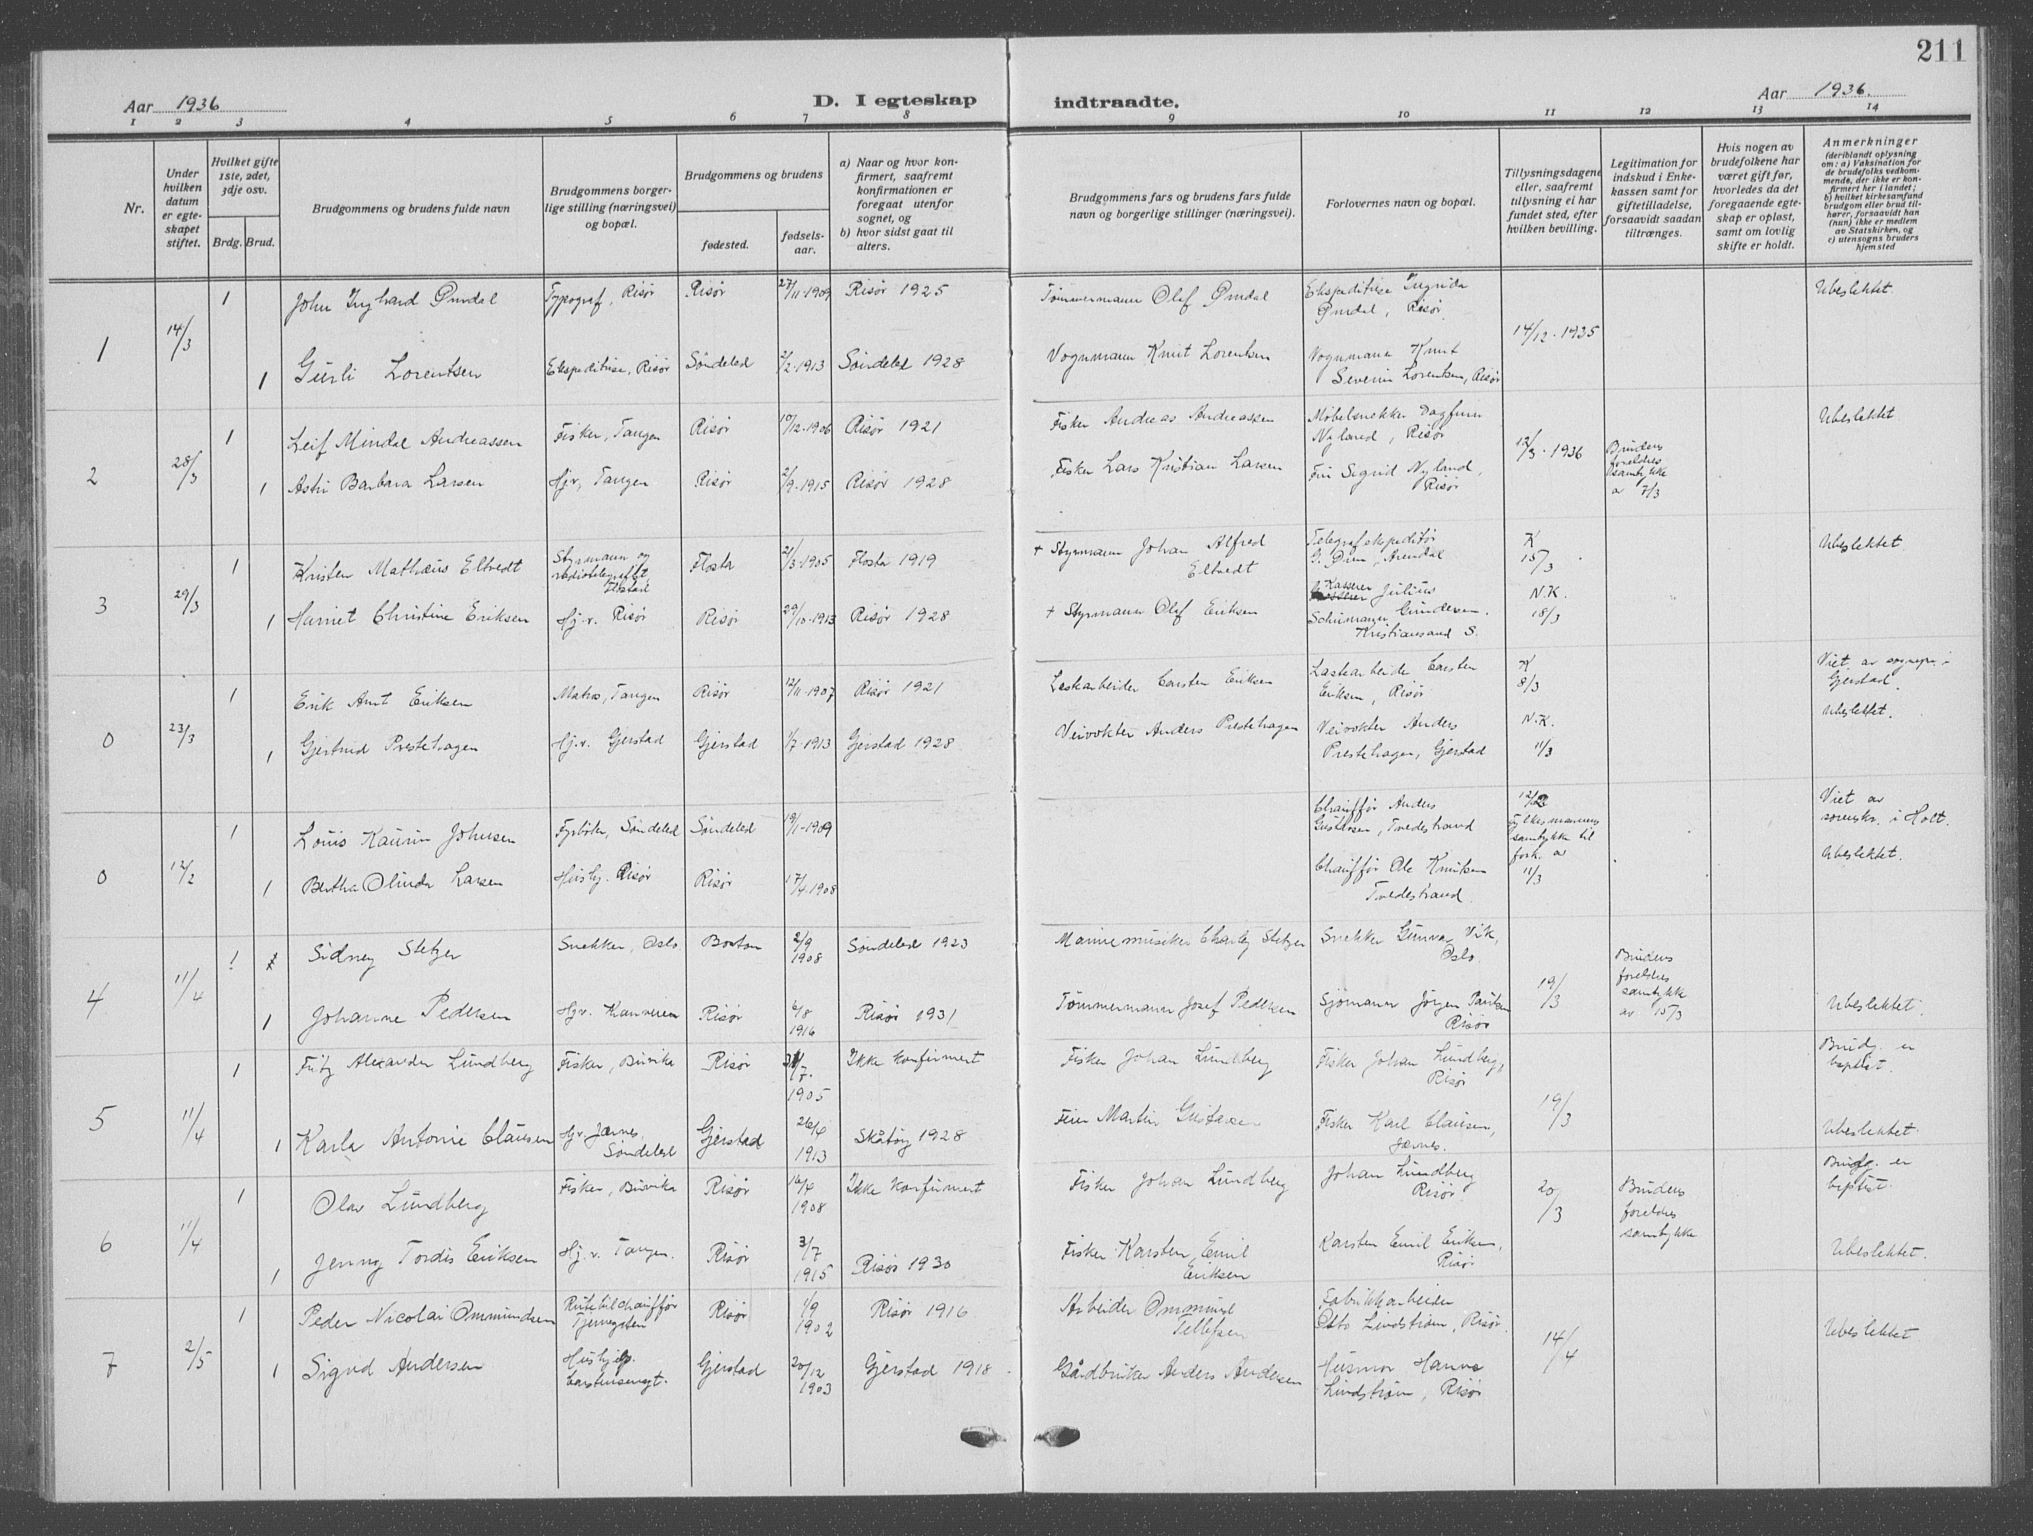 211
Aar 1936
D. I egteskap
indtraadte.
Aar 1936.
1 2 3 4 5 6 7 8 9 10 11 12 13 14
Nr.
Under hvilken datum er egteskapet stiftet.
Hvilket gifte 1ste, 2det, 3dje osv.
Brdg. Brud.
Brudgommens og brudens fulde navn
Brudgommens borgerlige stilling (næringsvei) og bopæl.
Brudgommens og brudens
fødested.
fødselsaar.
a) Naar og hvor konfirmert, saafremt konfirmationen er foregaat utenfor sognet, og
b) hvor sidst gaat til alters.
Brudgommens fars og brudens fars fulde navn og borgerlige stillinger (næringsvei).
Forlovernes navn og bopæl.
Tillysningsdagene eller, saafremt tillysning ei har fundet sted, efter hvilken bevilling.
Legitimation for indskud i Enkekassen samt for giftetilladelse, forsaavidt saadan tiltrænges.
Hvis nogen av brudefolkene har været gift før, hvorledes da det foregaaende egteskap er opløst, samt om lovlig skifte er holdt.
Anmerkninger
(deriblandt oplysning om: a) Vaksination for de brudefolks vedkommende, der ikke er konfirmert her i landet; b) hvilket kirkesamfund brudgom eller brud tilhører, forsaavidt han (hun) ikke er medlem av Statskirken, og c) utensogns bruders hjemsted
1 14/3 1 John Inghard Ømdal Typograf, Risør Risør 27/11-1909 Risør 1925 Tømmermann Olaf Ømdal Ekspeditrise Ingrida Ømdal, Risør 14/12-1935 Ubeslektet.
1 Gurli Lorentsen Ekspeditrise, Risør Søndeled 2/2-1913 Søndeled 1928 Vognmann Knut Lorentsen Vognmann Knut Severin Lorentsen, Risør
2 28/3 1 Leif Mindal Andreassen Fisker, Tangen Risør 10/12-1906 Risør 1921 Fisker Andreas Andreassen Møbelsnekker Dagfinn Nyland, Risør 12/3-1936 Brudens foreldres samtykke av 7/3 Ubeslektet
1 Astri Barbara Larsen Hj.v, Tangen Risør 2/9-1915 Risør 1928 Fisker Lars Kristian Larsen Fru Sigrid Nyland, Risør
3 29/3 1 Kristen Mathæus Eltvedt Styrmann og radiotelegrafist Flostad Flosta 21/3-1905 Flosta 1919 + Styrmann Johan Alfred Eltvedt Telegrafekspeditør G. Øren, Arendal K 15/3 Ubeslektet
1 Harriet Christine Eriksen Hj.v. Risør Risør 29/10-1913 Risør 1928 + Styrmann Olaf Eriksen Kasserer Julius Schumann Gundersen. Kristiansand S. N.K. 18/3
0 23/3 1 Erik Arnt Eriksen Matros, Tangen Risør 12/11-1907 Risør 1921 Laskarbeider Carsten Eriksen Laskarbeider Carsten Eriksen, Risør K 8/3 Viet av sognepr. i Gjerstad.
1 Gjertrud Prestehagen Hj.v. Gjerstad Gjerstad 1/7-1913 Gjerstad 1928 Veivokter Anders Prestehagen Veivokter Anders Prestehagen, Gjerstad N.K. 11/3 Ubeslektet.
0 12/2 1 Louis Kaurin Johnsen Fyrbøter, Søndeled Søndeled 19/1-1909 Chauffør Anders Gustavsen, Tvedestrand 12/2 Fylkesmannens samtykke til fork. av 11/3 Viet av sorenskr. i Holt.
1 Bertha Olinda Larsen Hushj. Risør Risør 17/4-1908 Chauffør Ole Knutsen Tvedestrand Ubeslektet.
4 11/4 1 Sidney Stetzer Snekker, Oslo Boston 2/9 1908 Søndeled 1923 Marinemusiker Charley Stetzer Snekker Gunvar Vik, Oslo. 19/3 Brudens foreldres samtykke av 15/3
1 Johanne Pedersen Hjv. Kamveien Risør 6/8 1916 Risør 1931 Tømmermann Josef Pedersen Sjømann Jørgen Paulsen Risør Ubeslektet.
5 11/4 1 Fritz Alexander Lundberg Fisker, Buvika Risør /7. 1905 Ikke konfirmert Fisker Johan Lundberg Fisker Johan Lundberg, Risør 19/3 Brudg. er baptist.
1 Karla Antonie Clausen Hjv. Jærnes, Søndeled Gjerstad 26/6 1913 Skåtøy 1928 Feier Martin Gustavsen Fisker Karl Clausen, Jærnes. Ubeslektet.
6 11/4 1 Olav Lundberg Fisker, Buvika Risør 16/4 1908 Ikke konfirmert Fisker Johan Lundberg Johan Lundberg Risør. 20/3 Brudens foreldres samtykke Brudg. er baptist.
1 Jenny Tordis Eriksen Hj.v. Tangen. Risør 3/7 1915 Risør 1930 Fisker Karsten Emil Eriksen Karsten Emil Eriksen, Risør Ubeslektet.
7 2/5 1 Peder Nicolai Ommundsen Rutebilchauffør Tjenngaten Risør 1/9 1902 Risør 1916 Arbeider Ommund Tellefsen Fabrikkarbeider Otto Lindstrøm, Risør. 14/4 Ubeslektet
1 Sigrid Andersen Hushjelp. Carstensengt. Gjerstad 20/12 1903 Gjerstad 1918. Gårdbruker Anders Andersen Husmor Hanna Lindstrøm, Risør